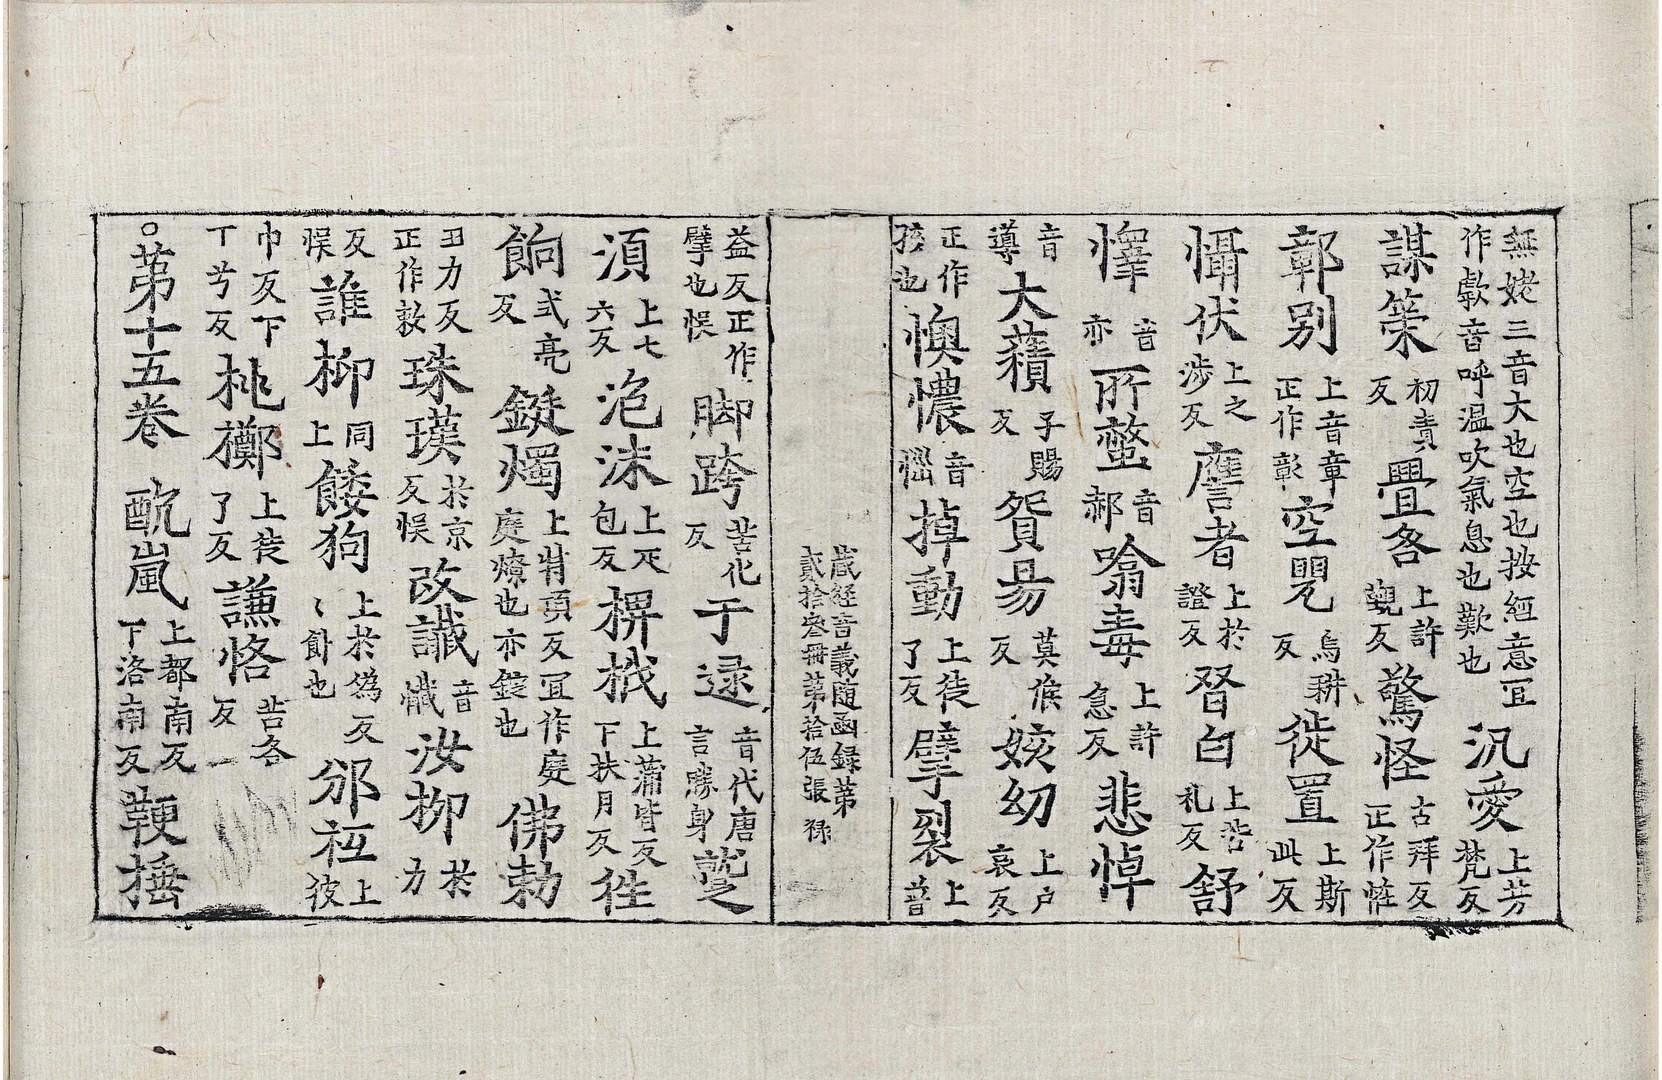 無姥三音大也空也按經意冝作歔音呼温吹氣息也歎也 汎愛上芳梵反
謀策初責反 畳各上許覲反 驚怪古拜反正作恠
鄣别上音章正作彰 空兕烏耕反 徙置上斯此反
懾伏上之涉反 譍者上於證反 稽白上苦礼反 舒
懌音亦 所螫音郝 噏毒上許急反 悲悼
音導 大䕌子賜反 貿昜莫候反 姟幼上户哀反
正作孩也 懊憹音㛴 掉動上徒了反 擘裂上普
藏經音義随函録第貳拾叁冊第拾伍張 禄
益反正作擘也悮 脚跨苦化反 于逯音代唐言勝身 蹔
湏上七六反 泡沫上疋包反 椑栰上蒲皆反下扶月反 徃
餉式亮反 鋌燭上特頂反冝作庭庭燎也亦錠也 佛勑
丑力反正作敕 珠瑛於京反悮 改䜟音懺 汝抑於力
反悮 誰抑同上 餧狗上於為反〻飼也 邠祁上彼
巾反下丁兮反 桃擲上徒了反 謙恪苦各反
○苐十五卷 酖嵐上都南反下洛南反 鞕捶